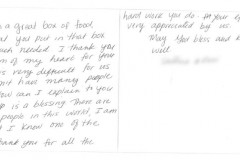 a great box of food
at you put in that box
ch needed I thank you
om of my heart for your
s very difficult for us
but how many people
ow can I explain to your
lp is a blessing There are
people in this world, I am
I know one of the
Thank you for all the
hard work you do. In your
very appreciated by us.
May You bless and
well